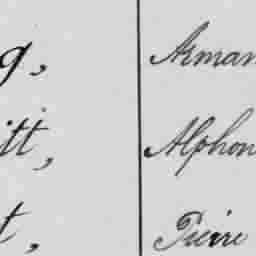 g, Arman
itt, Alphon
t, Pierre